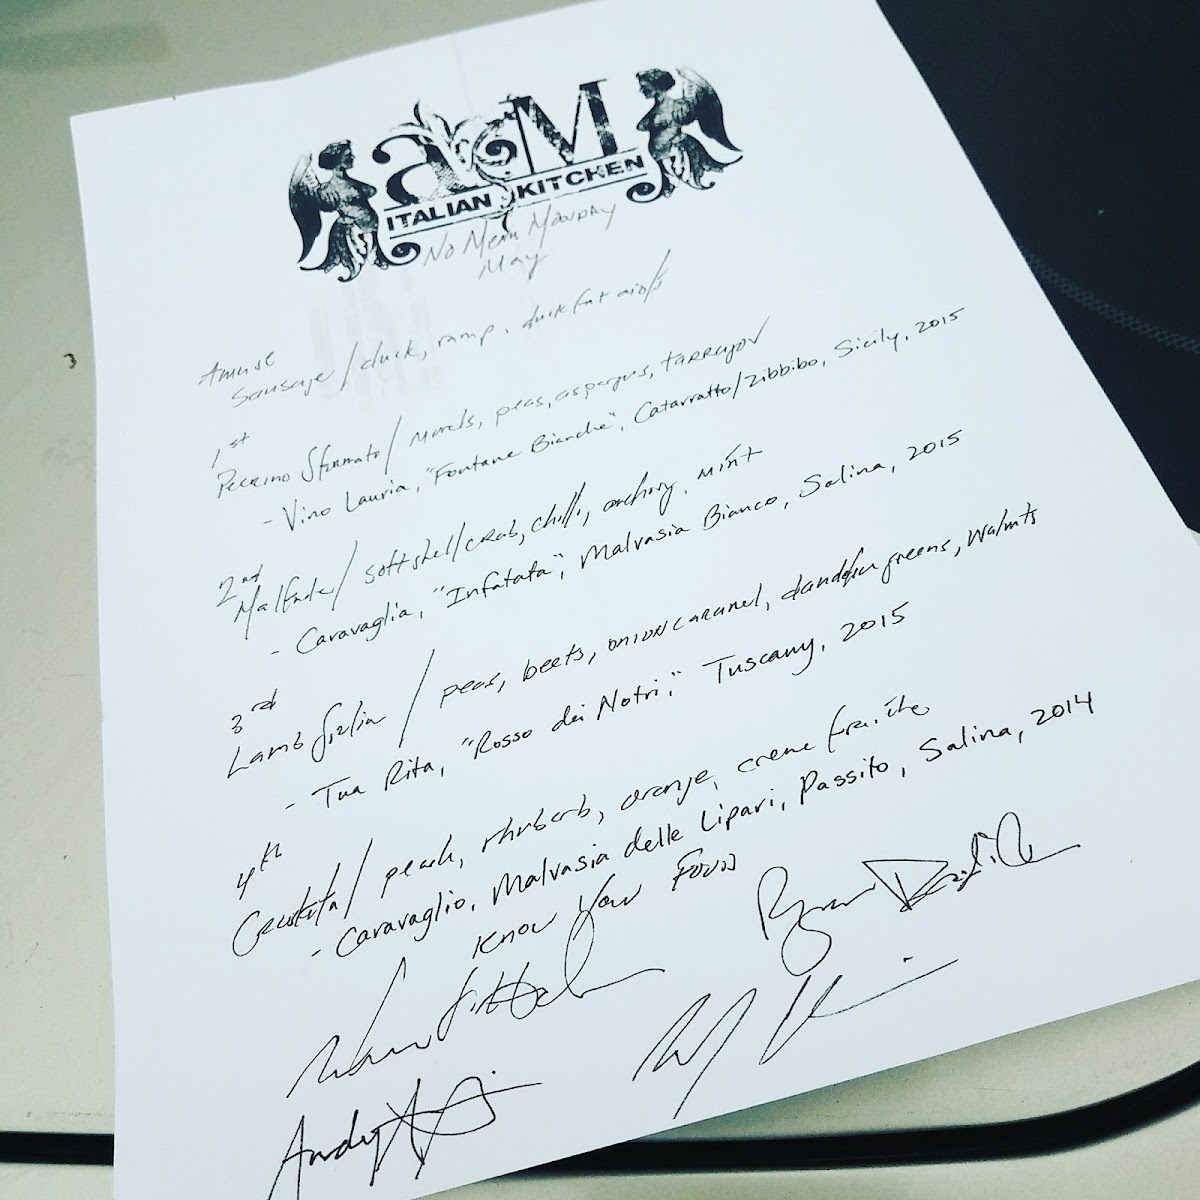 a M
ITALIAN KITCHEN
No Menu Monday
May
Amuse
Sausage / duck, ramp, duck fat aioli
1st
Pecorino Sformato / Morels, peas, asparagus, tarragon
- Vino Lauria, "Fontane Bianche", Catarratto/Zibbibo, Sicily, 2015
2nd
Malfade / softshell crab, chili, anchovy, mint
- Caravaglia, "Infatata", Malvasia Bianco, Salina, 2015
3rd
Lamb / peas, beets, onion caramel, dandelion greens, walnuts
- Tua Rita, "Rosso dei Notri," Tuscany, 2015
4th
Crostata / peach, rhubarb, orange, creme fraiche
- Caravaglio, Malvasia delle Lipari, Passito, Salina, 2014
Know Your Food
Andy